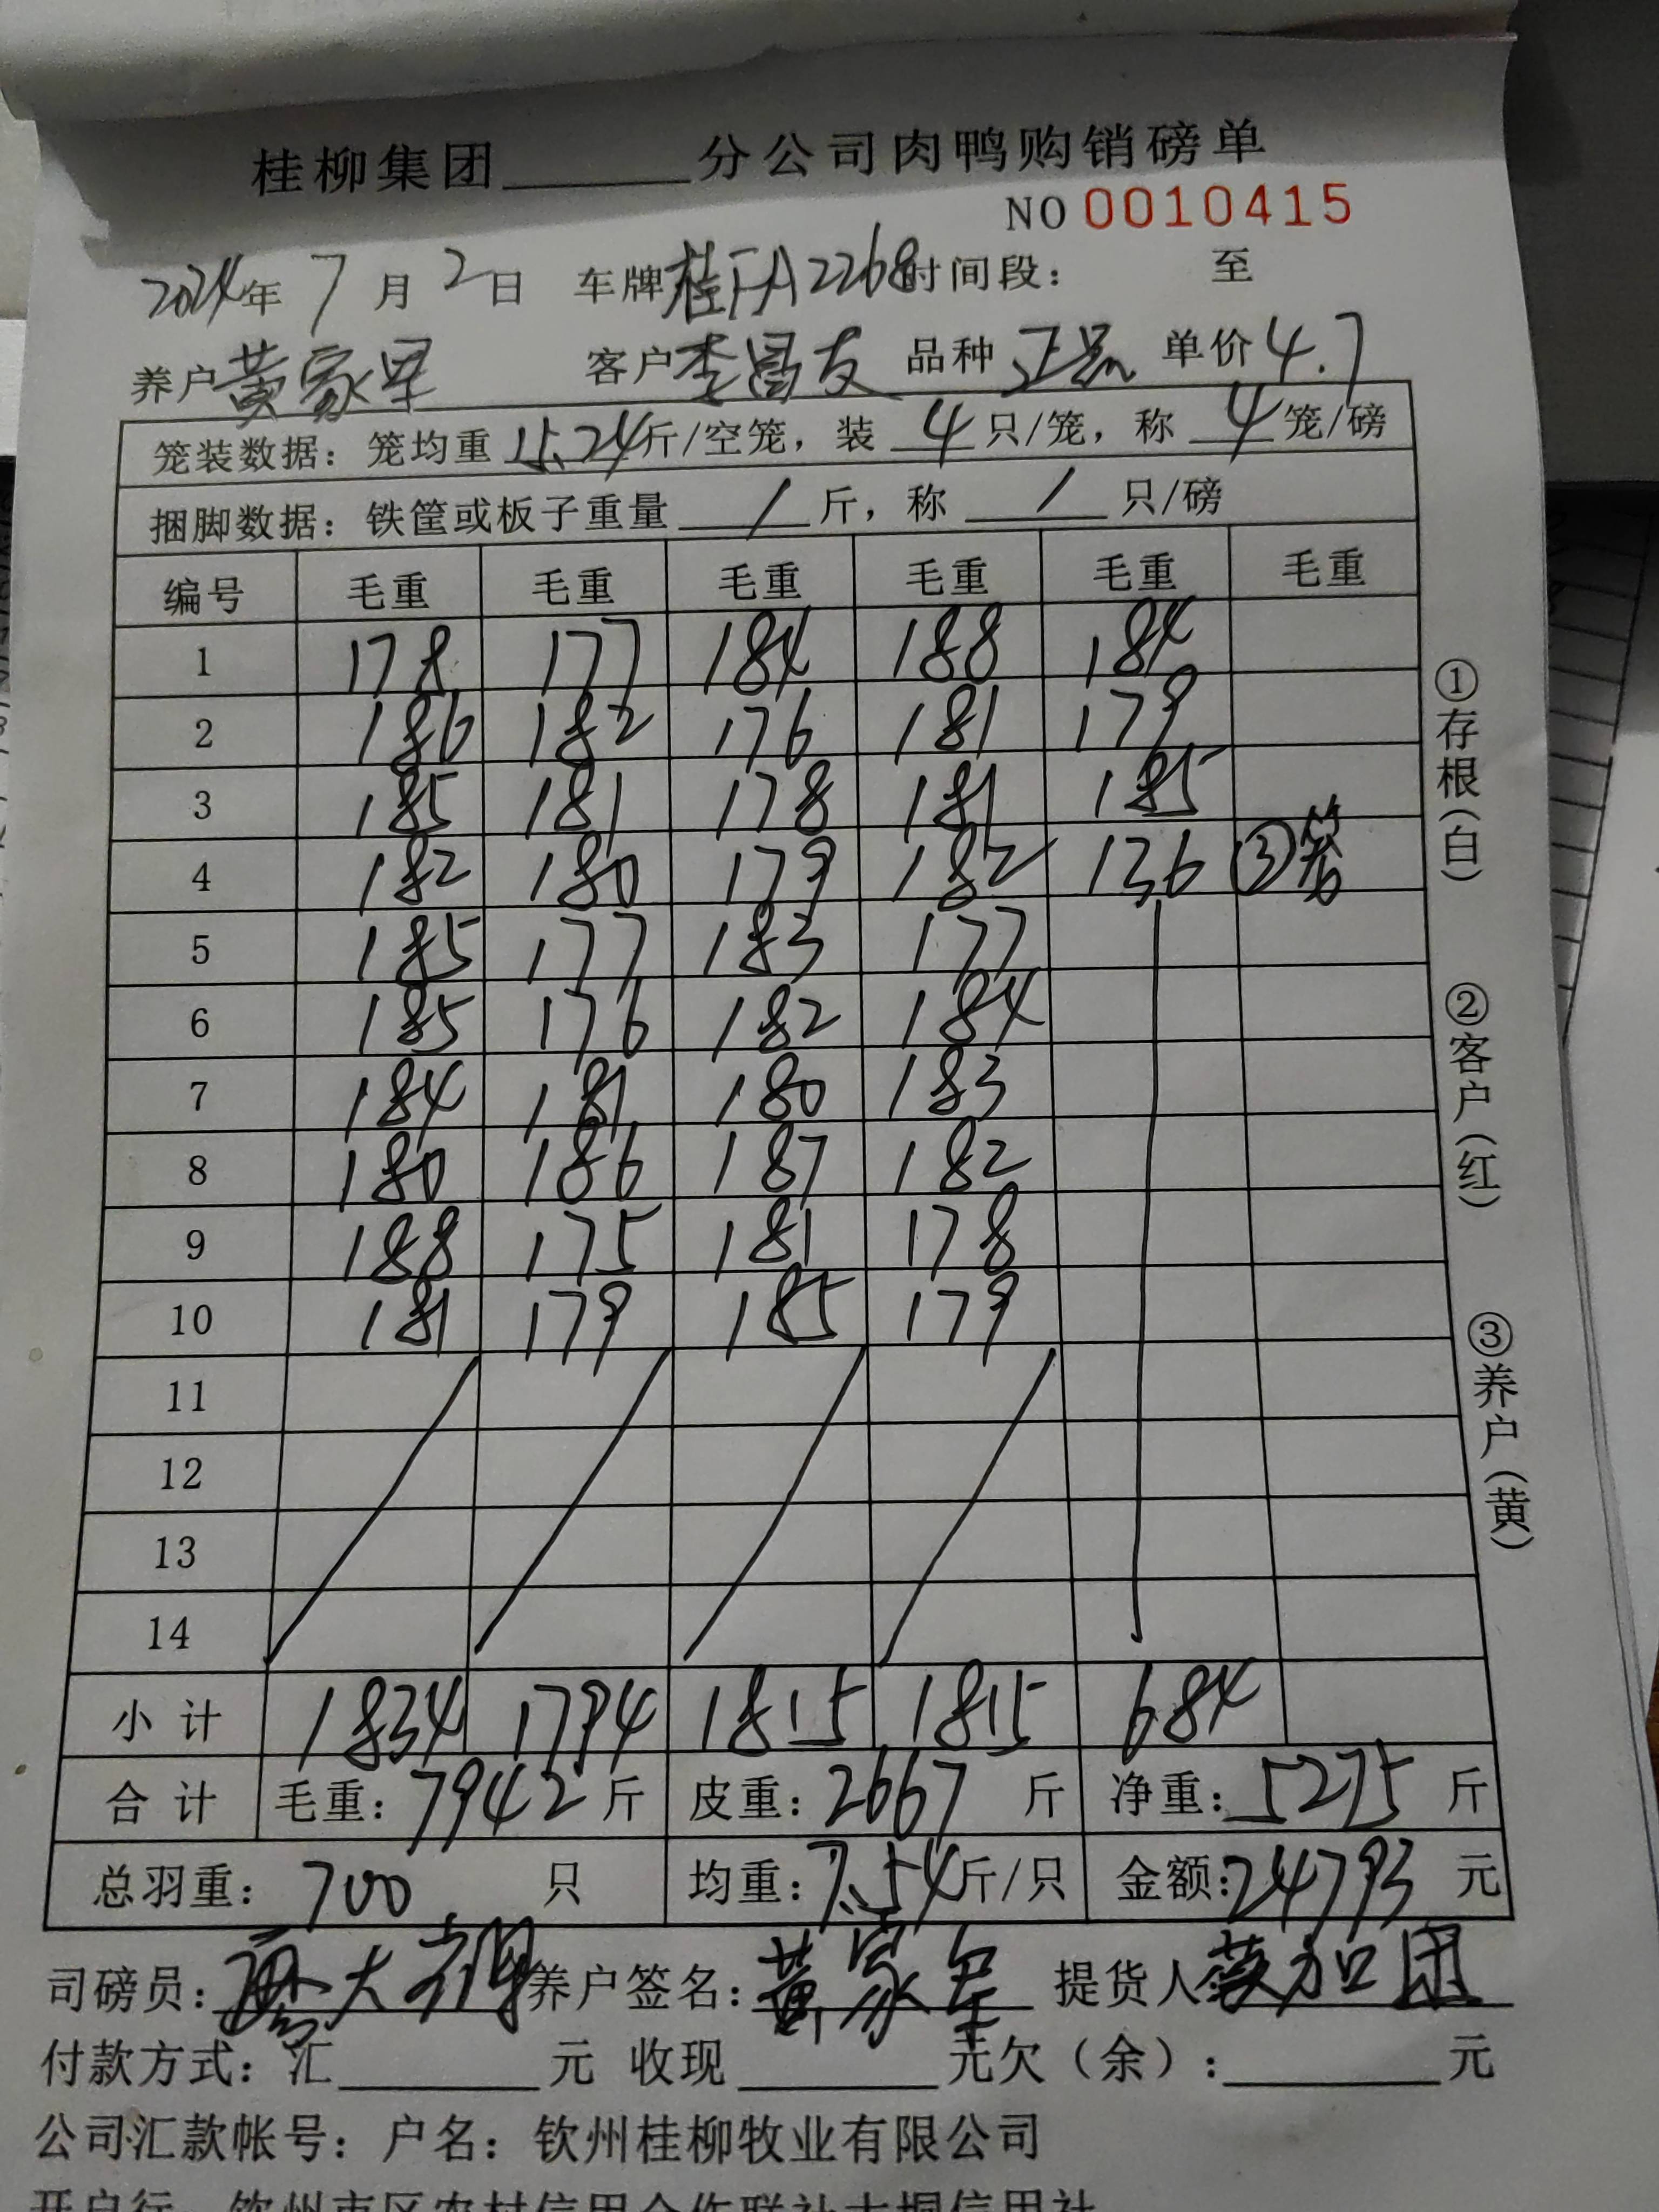 桂柳集团______分公司肉鸭购销磅单
NO 0010415
2024年 7 月 2 日 车牌桂FA2268时间段： 至
养户黄家 客户李昌友 品种 正品 单价4.7
笼装数据：笼均重 15.24斤/空笼，装 4 只/笼，称 4 笼/磅
捆脚数据：铁筐或板子重量 / 斤，称 / 只/磅
编号 毛重 毛重 毛重 毛重 毛重 毛重
1 178 177 184 188 184
2 186 182 176 181 179
3 185 181 178 181 185
4 182 180 179 182 136 ③笼
5 185 177 183 177
6 185 176 182 184
7 184 181 180 183
8 180 186 187 182
9 188 175 181 178
10 181 179 185 179
11
12
13
14
小计 1834 1794 1815 1815 684
合计 毛重：7942 斤 皮重：2667 斤 净重：5275 斤
总羽重：700 只 均重：7.54斤/只 金额：24793 元
司磅员： 养户签名：黄家 提货人 加团
付款方式：汇______元 收现______元欠（余）：______元
公司汇款帐号：户名：钦州桂柳牧业有限公司
开户行：钦州市区农村信用合作联社大垌信用社
①存根(白)
②客户(红)
③养户(黄)